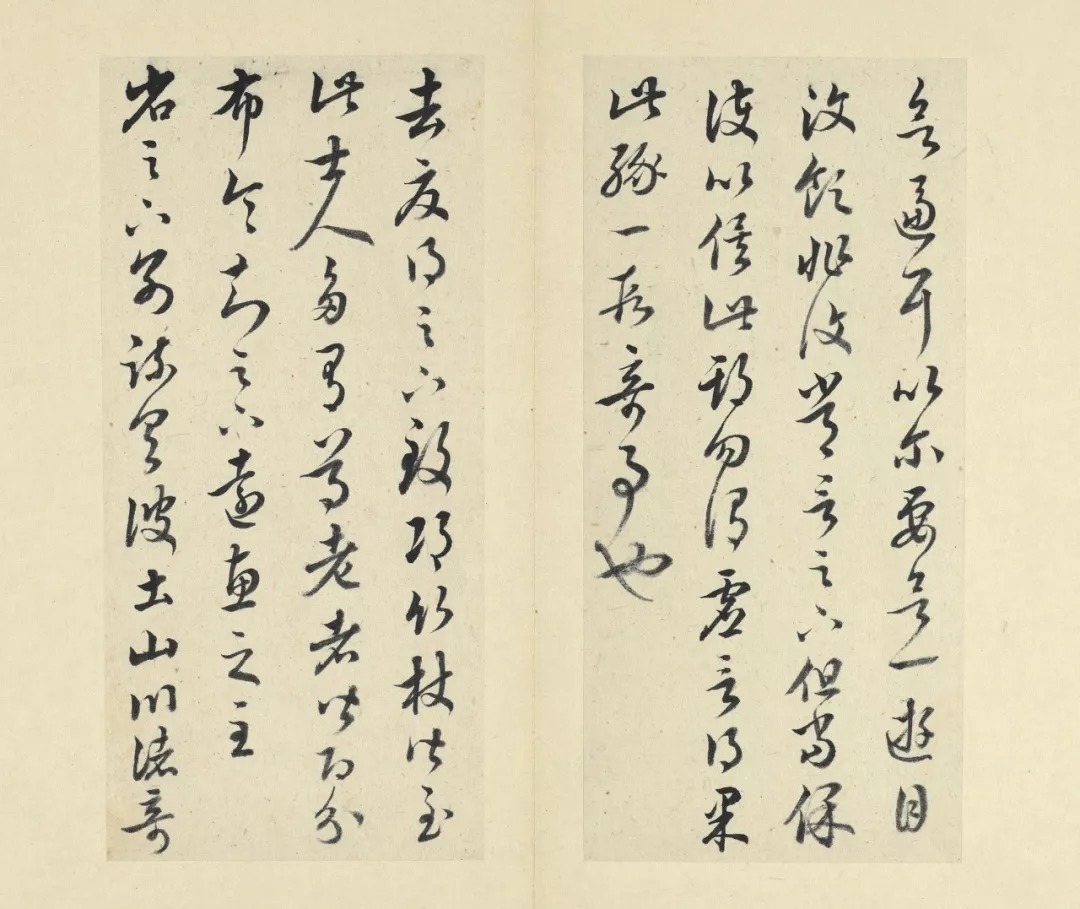 欲逼耳以爾要欲一遊目
汶領非復常言足下但當保
護以俟此期勿謂虛言得果
此緣一段奇事也
去夏得足下致邛竹杖皆至
此士人多有尊老者皆即分
布令知足下遠惠之至
省足下別疏具彼土山川諸奇